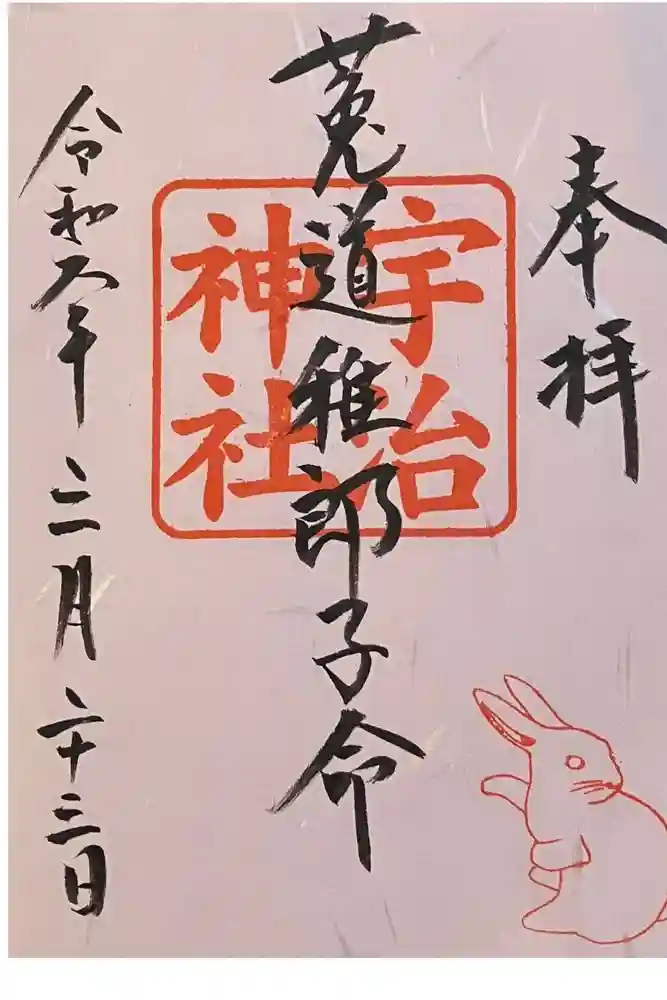 奉拝
菟道稚郎子命
宇治
神社
令和六年 三月 二十三日